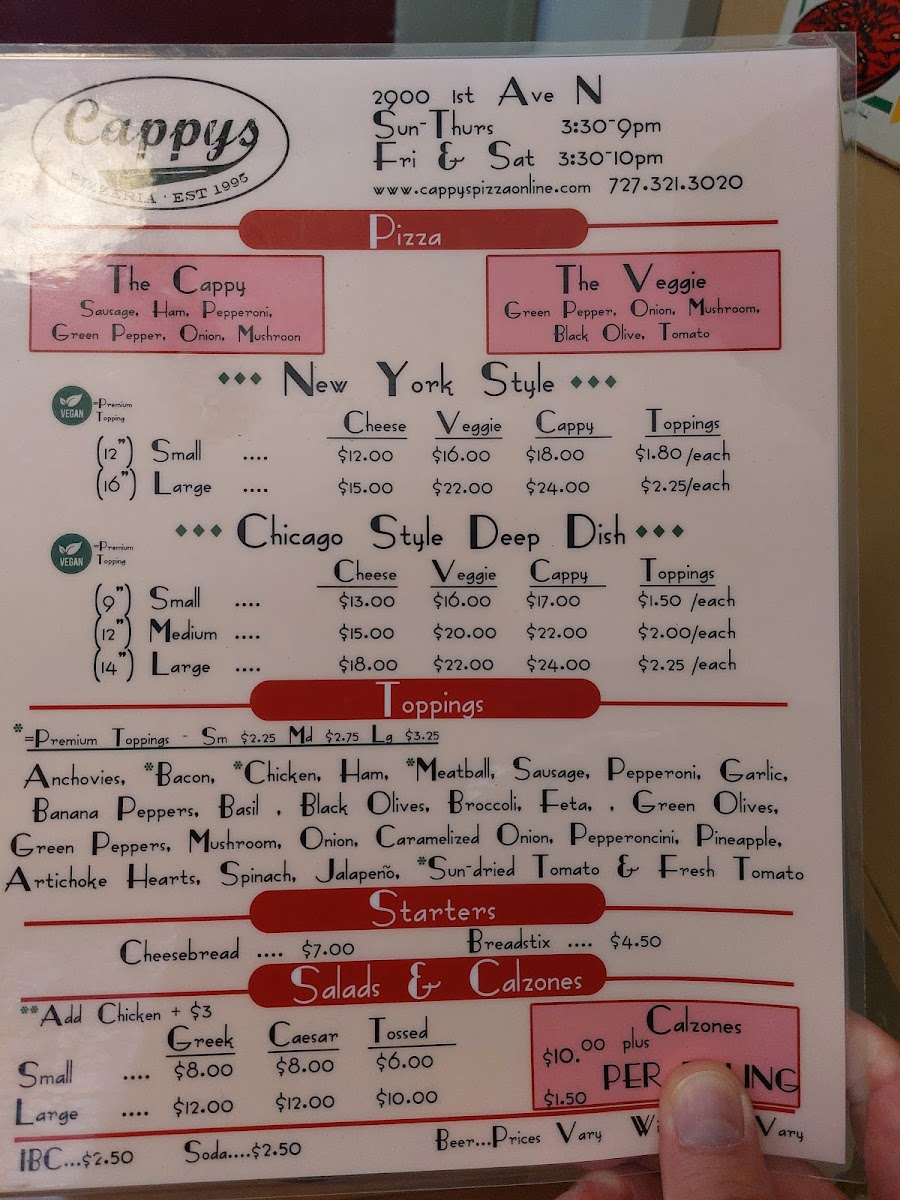 Cappys
PIZZERIA · EST 1995
2900 1st Ave N
Sun-Thurs 3:30-9pm
Fri & Sat 3:30-10pm
www.cappyspizzaonline.com 727.321.3020
Pizza
The Cappy
Sausage, Ham, Pepperoni,
Green Pepper, Onion, Mushroon
The Veggie
Green Pepper, Onion, Mushroom,
Black Olive, Tomato
New York Style
VEGAN =Premium
Topping
Cheese Veggie Cappy Toppings
(12") Small .... $12.00 $16.00 $18.00 $1.80 /each
(16") Large .... $15.00 $22.00 $24.00 $2.25/each
Chicago Style Deep Dish
VEGAN =Premium
Topping
Cheese Veggie Cappy Toppings
(9") Small .... $13.00 $16.00 $17.00 $1.50 /each
(12") Medium .... $15.00 $20.00 $22.00 $2.00/each
(14") Large .... $18.00 $22.00 $24.00 $2.25 /each
Toppings
*=Premium Toppings - Sm $2.25 Md $2.75 Lg $3.25
Anchovies, *Bacon, *Chicken, Ham, *Meatball, Sausage, Pepperoni, Garlic,
Banana Peppers, Basil , Black Olives, Broccoli, Feta, , Green Olives,
Green Peppers, Mushroom, Onion, Caramelized Onion, Pepperoncini, Pineapple,
Artichoke Hearts, Spinach, Jalapeño, *Sun-dried Tomato & Fresh Tomato
Starters
Cheesebread .... $7.00 Breadstix .... $4.50
Salads & Calzones
**Add Chicken + $3
Greek Caesar Tossed
Small .... $8.00 $8.00 $6.00
Large .... $12.00 $12.00 $10.00
Calzones
$10.00 plus
$1.50 PER
IBC...$2.50 Soda....$2.50 Beer...Prices Vary Vary